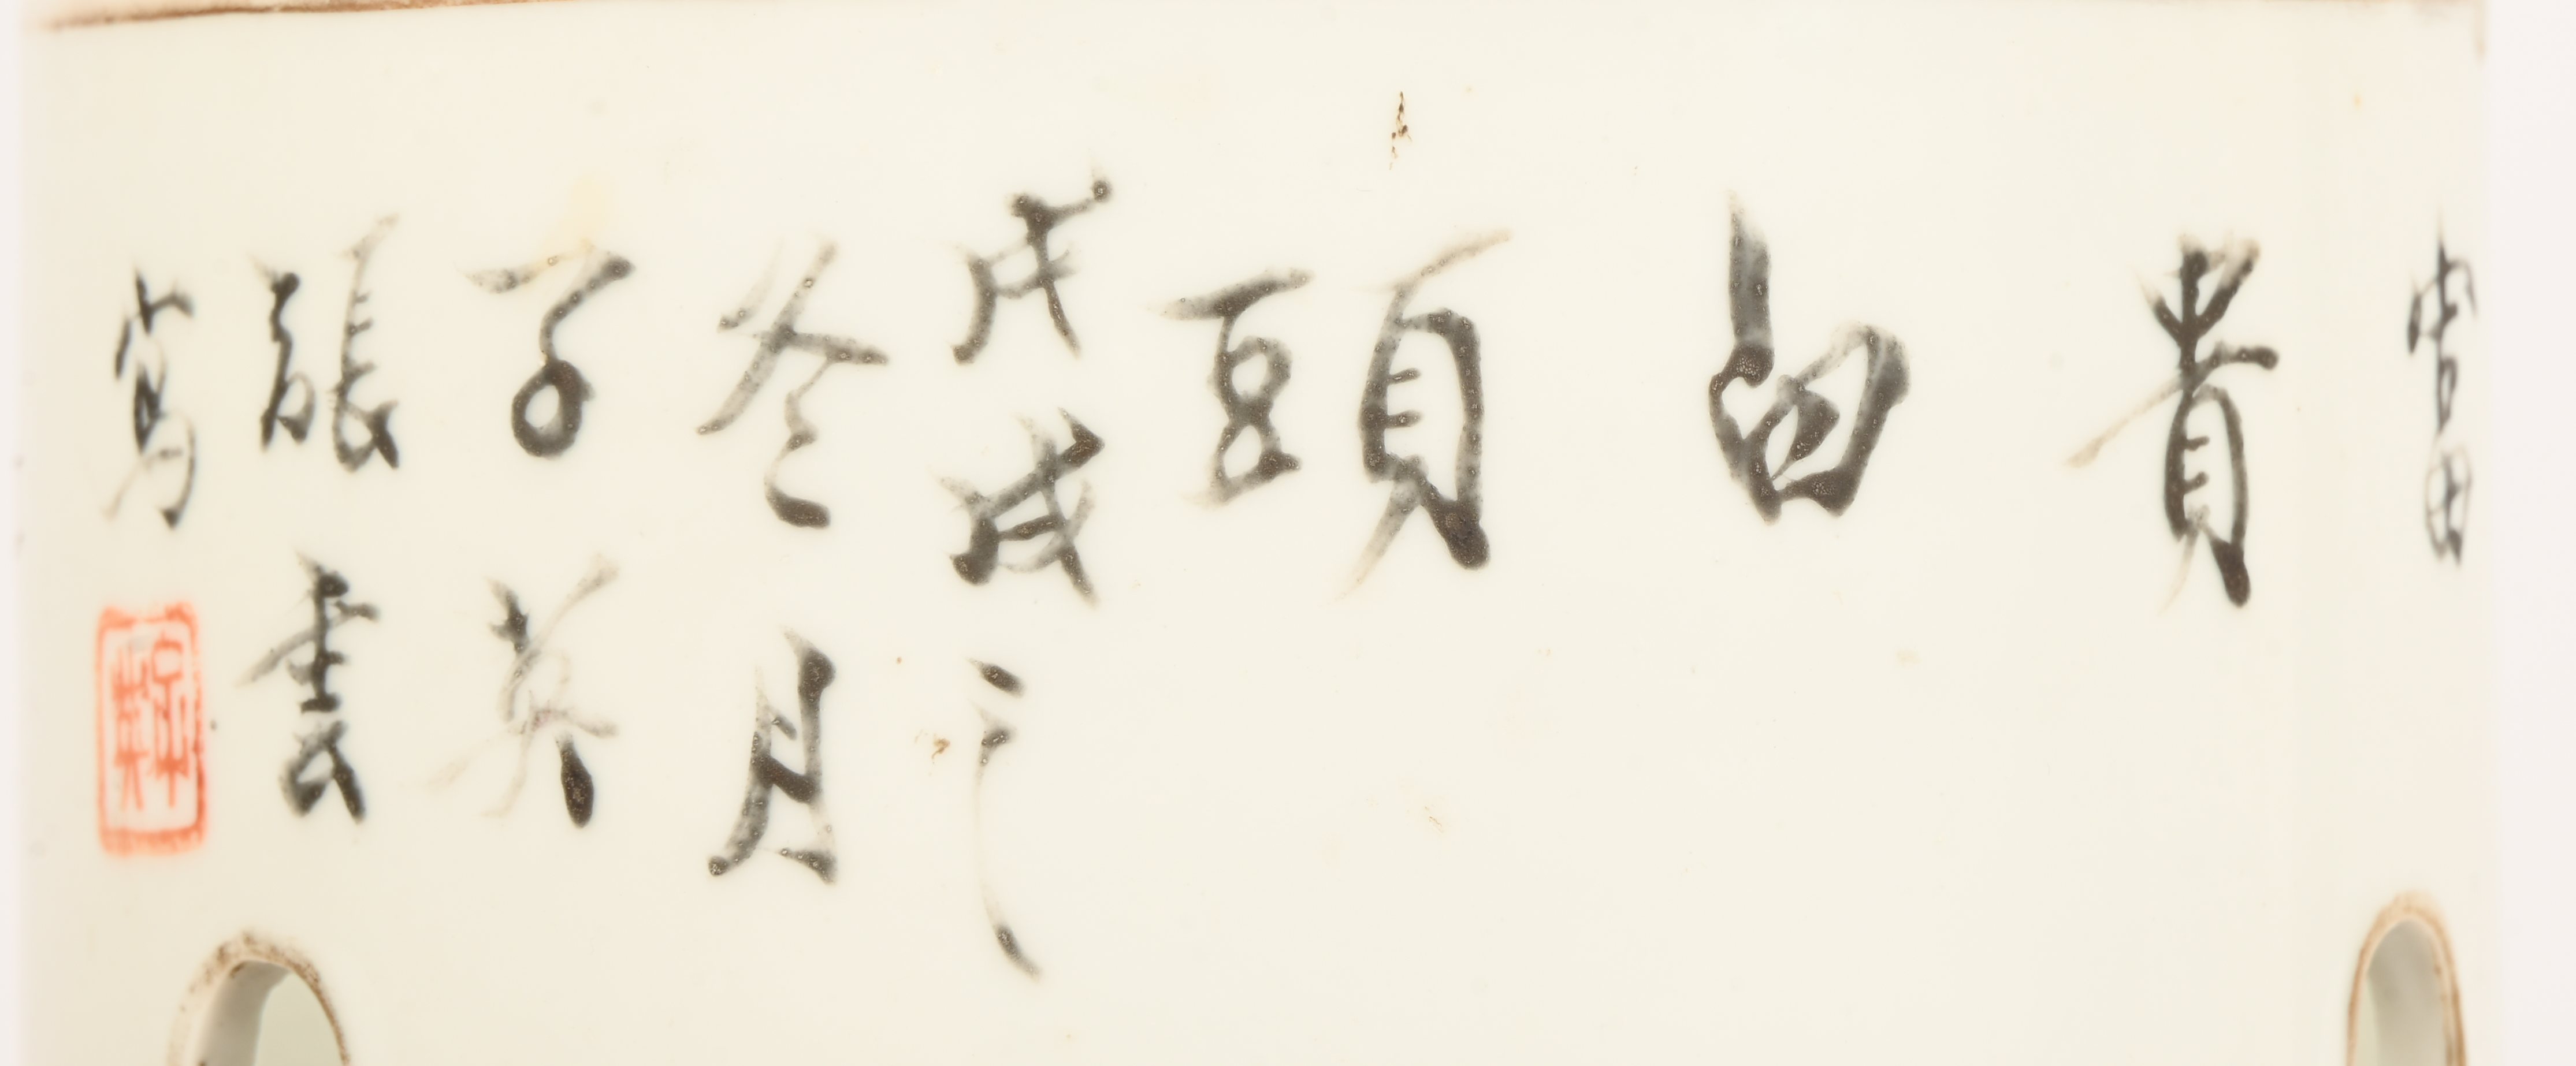 富
貴
白
頭
戊戌之
冬月
子英
張雲
寫